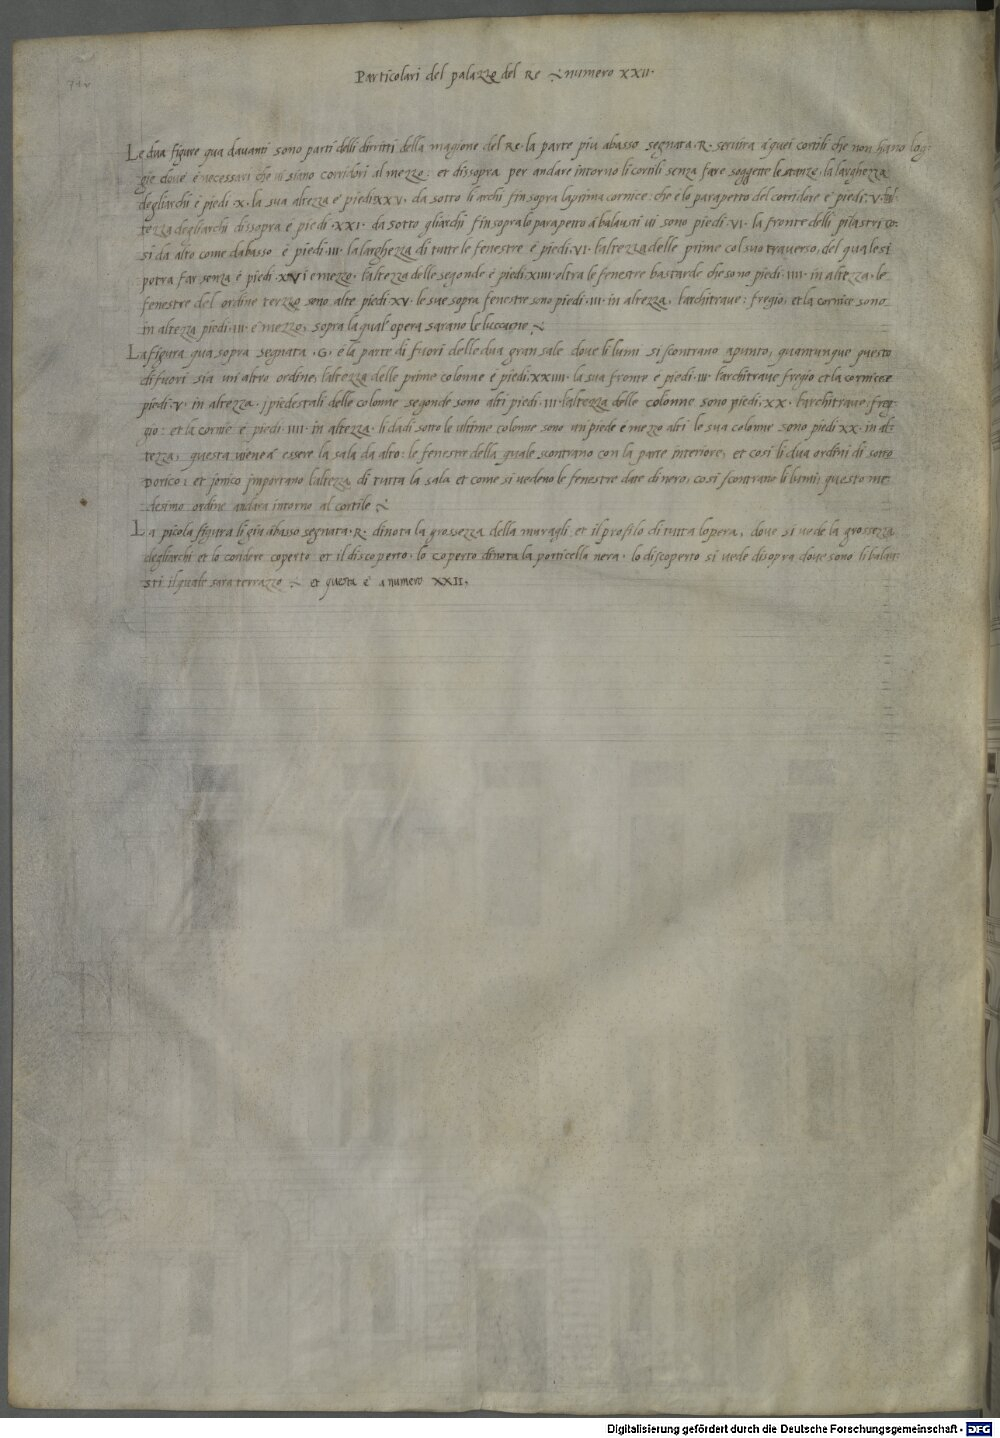 71v
Particolari del palazzo del Re numero XXII.
Le dua figure qua davanti sono parti delli diritti della magione del Re. la parte più abasso segnata .R. servira à quei cortili che non hano log-
gie dove è necessari che vi siano corridori al mezzo: et dissopra per andare intorno li cortili senza fare soggette le stanze. la larghezza
degliarchi è piedi X. la sua altezza è piedi XXV. da sotto li archi fin sopra la prima cornice: che è lo parapetto del corridore è piedi .V. lal-
tezza degliarchi dissopra è piedi XXI. da sotto gliarchi fin sopra lo parapetto à balausti vi sono piedi .VI. la fronte delli pilastri co-
si da alto come dabasso è piedi .III. la larghezza di tutte le fenestre è piedi .VI. laltezza delle prime col suo traverso, del quale si
potra far senza è piedi XVI e mezzo. laltezza delle segonde è piedi XIIII. oltra le fenestre bastarde che sono piedi .IIII. in altezza. le
fenestre del ordine terzzo sono alte piedi XV. le sue sopra fenestre sono piedi .III. in altezza, larchitrave: fregio, et la cornice sono
in altezza piedi .III. e mezzo, sopra la qual opera sarano le luccarne
La figura qua sopra segnata .G. è la parte di fuori delle dua gran sale dove li lumi si scontrano apunto, quantunque questo
di fuori sia un altro ordine, laltezza delle prime colonne è piedi XXIIII. la sua fronte è piedi .III. larchitrave fregio et la cornice è
piedi .V. in altezza. j piedestali delle colonne segonde sono alti piedi .III. laltezza delle colonne sono piedi XX. larchitrave, fre-
gio: et la cornice è piedi .IIII. in altezza. li dadi sotto le ultime colonne sono un piede è mezzo alti le sua colonne sono piedi XX. in al-
tezza, questa viene à essere la sala da alto: le fenestre della quale scontrano con la parte interiore, et cosi li dua ordini di sotto
Dorico: et jonico jmportano laltezza di tutta la sala et come si vedeno le fenestre date di nero, cosi scontrano li lumi, questo me
desimo ordine andara intorno al cortile
La picola figura li giu abasso segnata .R. dinota la grossezza della muragli. et il profilo di tutta lopera, dove si vede la grossezza
degliarchi et lo coridore coperto et il discoperto. lo coperto dinota la porticella nera. lo discoperto si vede disopra dove sono li balau-
sti il quale sara terrazzo et questa è a numero XXII,
Digitalisierung gefördert durch die Deutsche Forschungsgemeinschaft - DFG